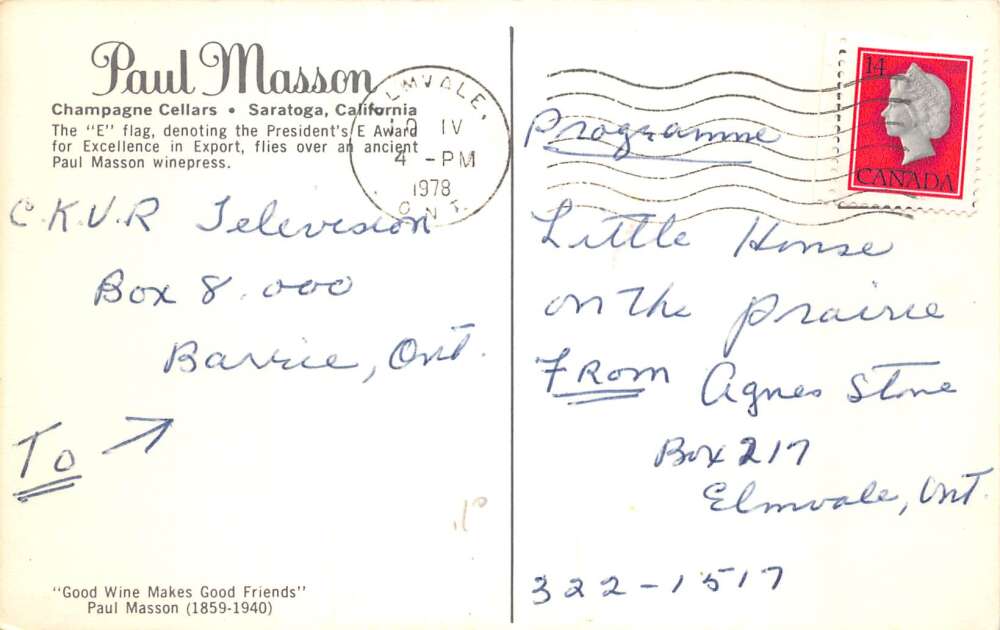 Paul Masson
Champagne Cellars • Saratoga, California
The "E" flag, denoting the President's E Award
for Excellence in Export, flies over an ancient
Paul Masson winepress.
C.K.V.R Television
Box 8.000
Barrie, Ont.
To
"Good Wine Makes Good Friends"
Paul Masson (1859-1940)
ELMVALE,
IV
4 - PM
1978
ONT.
14
CANADA
Programme
Little House
on the prairie
FROM Agnes Stone
Box 217
Elmvale, Ont.
322-1517